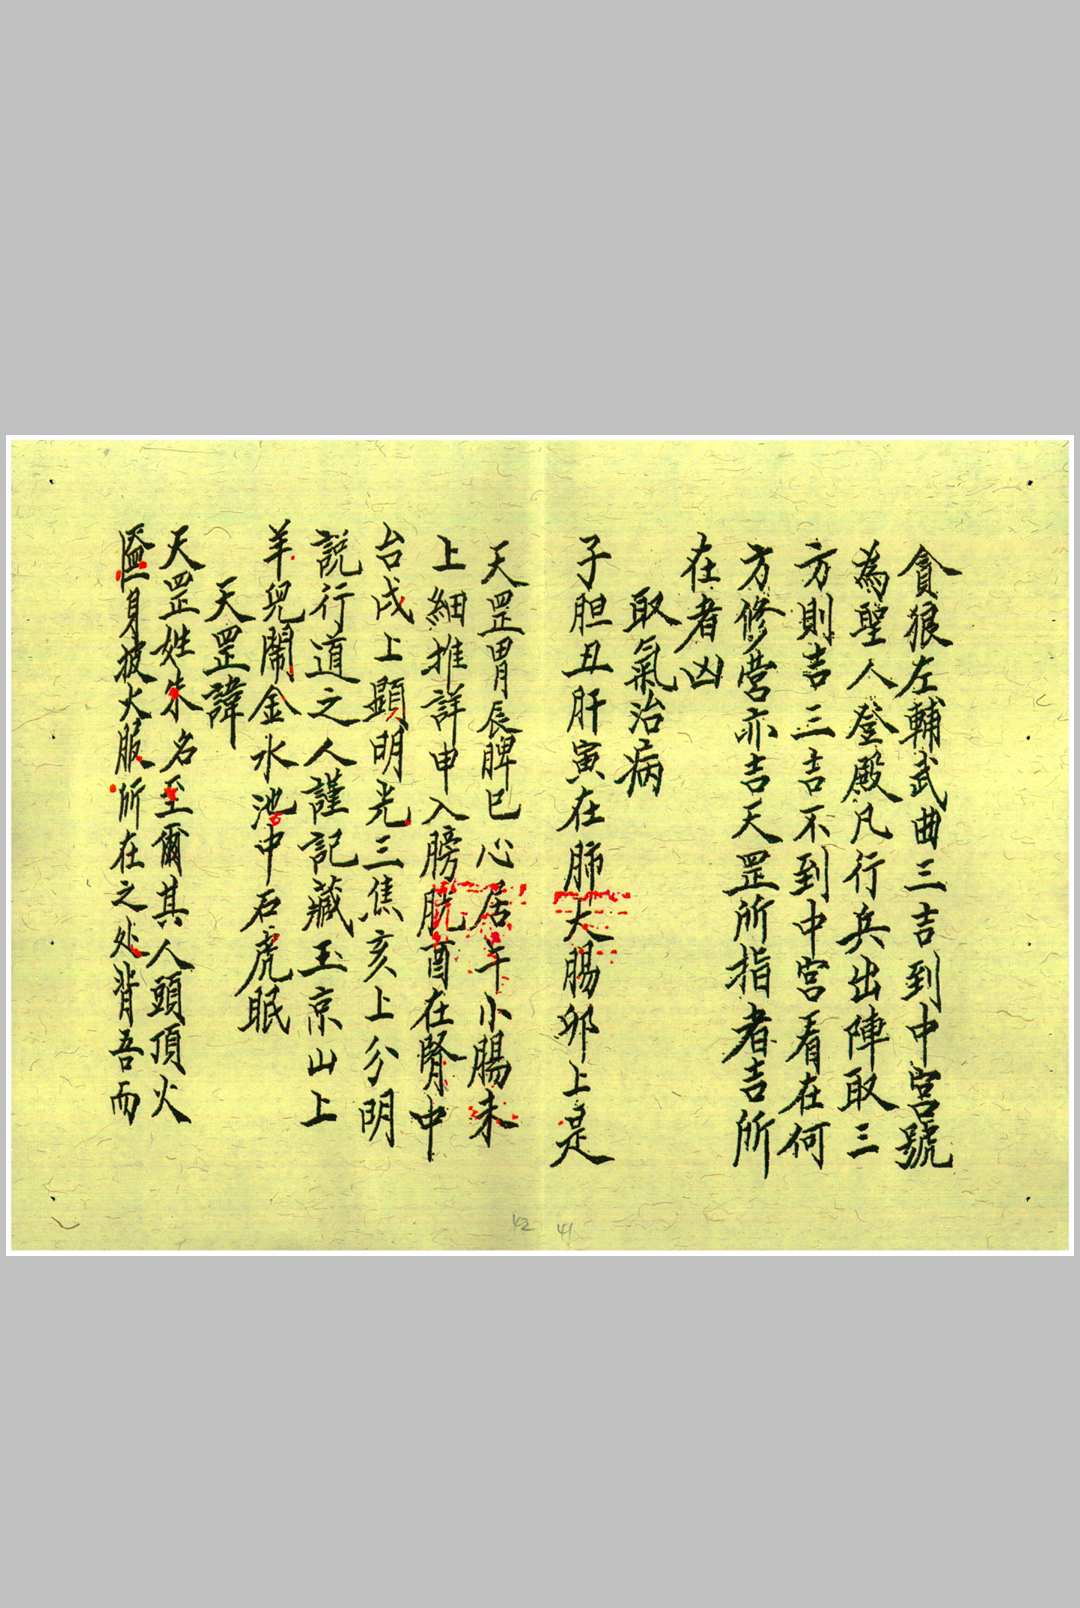 貪狼左輔武曲三吉到中宮號
為聖人登殿凡行兵出陣取三
方則吉三吉不到中宮看在何
方修營亦吉天罡所指者吉所
在者凶
取氣治病
子胆丑肝寅在肺大腸卯上是
天罡胃辰脾巳心居午小腸未
上細推詳申入膀胱酉在腎中
台戌上顯明光三焦亥上分明
説行道之人謹記藏玉京山上
羊兒鬧金水池中石虎眠
天罡諱
天罡姓朱名至爾其人頭頂火
身披火服所在之处背吾而
41
42